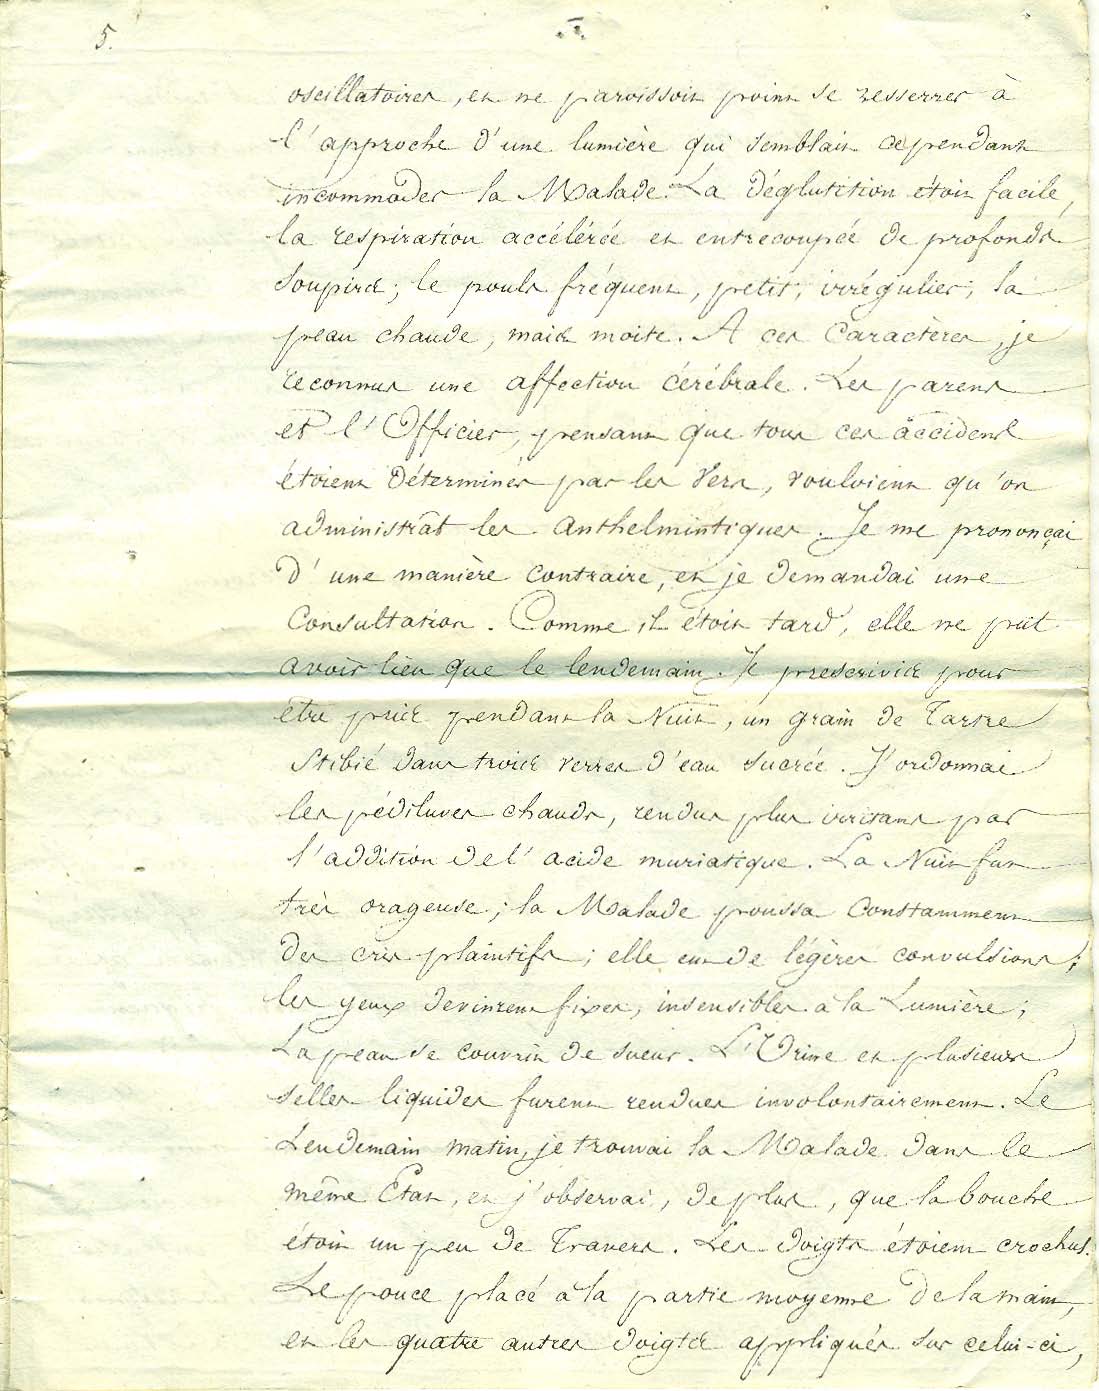 5.
oscillatoires, et ne paroissoit point se resserrer à
l'approche d'une lumière qui semblait cependant
incommoder la Malade. La déglutition étoit facile,
la respiration accélérée et entrecoupée de profonds
soupirs; le pouls fréquent, petit, irrégulier; la
peau chaude, mais moite. A ces Caractères, je
reconnus une affection cérébrale. Les parens
et l'Officier, pensant que tous ces accidens
étoient déterminés par les Vers, vouloient qu'on
administrât les Anthelmintiques. Je me prononçai
d'une manière contraire, et je demandai une
Consultation. Comme il étoit tard, elle ne put
avoir lieu que le lendemain. Je prescrivis pour
être pris pendant la Nuit, un grain de Tartre
Stibié dans trois verres d'eau sucrée. J'ordonnai
les pédiluves chauds, rendus plus irritans par
l'addition de l'acide muriatique. La Nuit fut
très orageuse; la Malade poussa Constamment
des cris plaintifs; elle eut de légères convulsions;
les yeux devinrent fixes, insensibles à la Lumière;
La peau se couvrit de sueur. L'Urine et plusieurs
selles liquides furent rendues involontairement. Le
Lendemain matin, je trouvai la Malade dans le
même Etat, et j'observai, de plus, que la bouche
étoit un peu de Travers. Les doigts étoient crochus.
Le pouce placé à la partie moyenne de la main,
et les quatre autres doigts appliqués sur celui-ci,